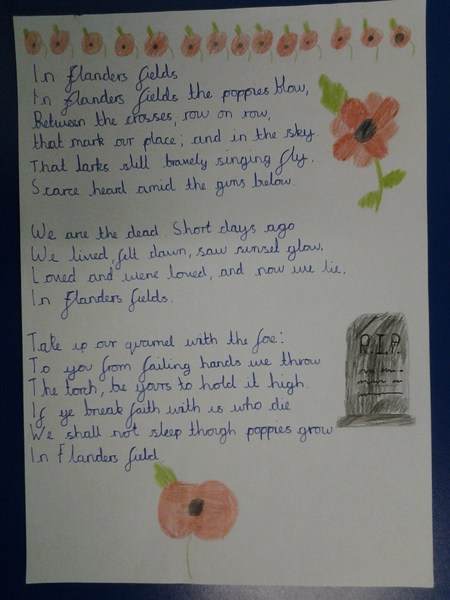 In Flanders fields
In Flanders fields the poppies blow,
Between the crosses, row on row,
that mark our place; and in the sky.
That larks still bravely singing fly.
Scarce heard amid the guns below.
We are the dead Short days ago
We lived, felt dawn, saw sunset glow.
Loved and were loved, and now we lie.
In Flanders fields.
Take up our quarrel with the foe:
To you from failing hands we throw
The torch, be yours to hold it high
If ye break faith with us who die
We shall not sleep though poppies grow
In Flanders field
R.I.P.